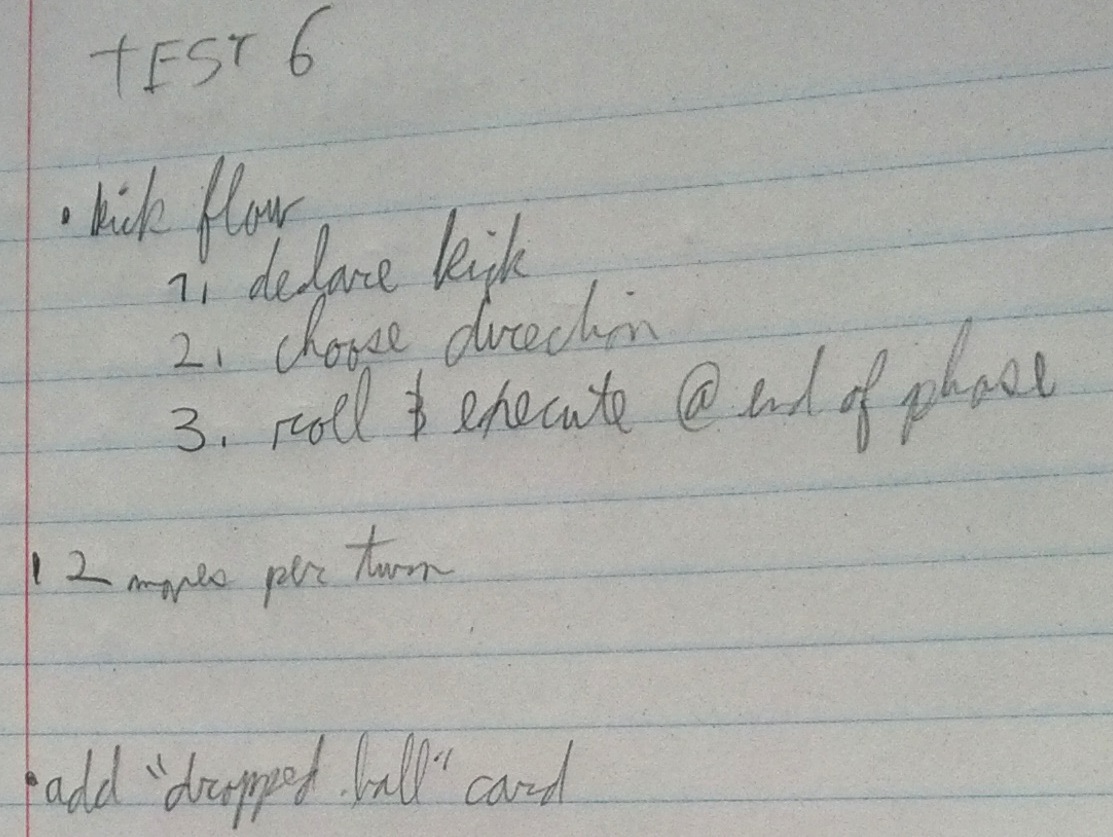 TEST 6
• kick flow
1. declare kick
2. choose direction
3. roll & execute @ end of phase
• 2 moves per turn
• add "dropped ball" card